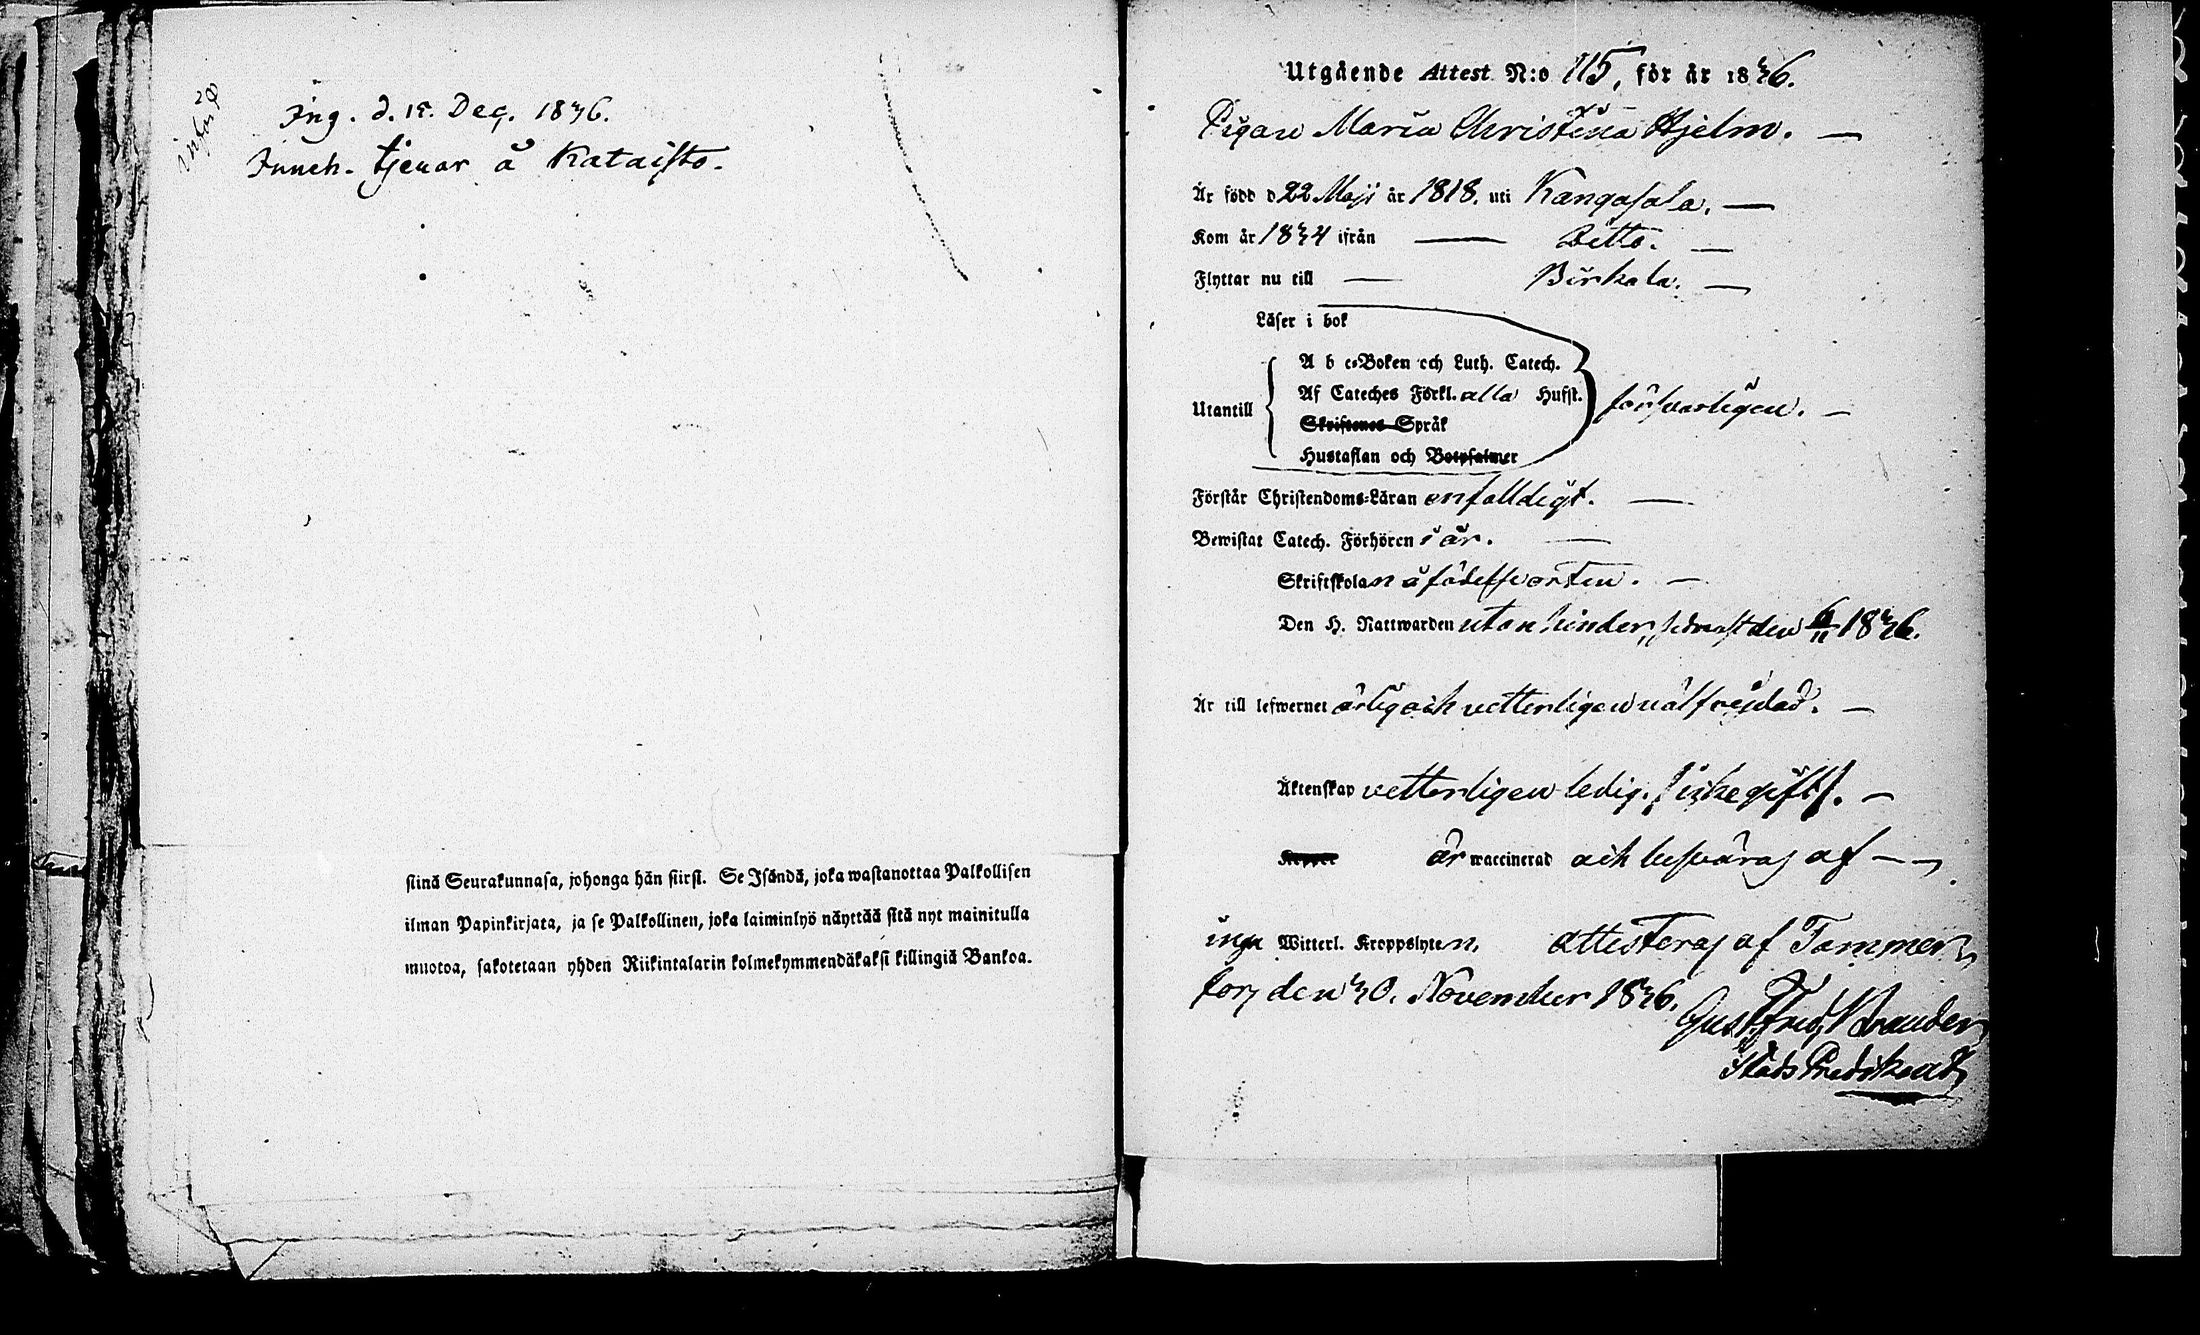 införd
Ing. d. 15. Dec. 1836.
Inneh. tjenar å Kataisto.
siinä Seurakunnasa, johonga hän siirsi. Se Isändä, joka wastanottaa Palkollisen
ilman Papinkirjata, ja se Palkollinen, joka laiminlyö näyttää sitä nyt mainitulla
muotoa, sakotetaan yhden Riikintalarin kolmekymmendäkaksi killingiä Bankoa.
Utgående Attest N:o 115, för år 1836.
Pigan Maria Christina Hjelm. —
Är född d 22 Maji år 1818. uti Kangasala. —
Kom år 1834 ifrån — Ditto. —
Flyttar nu till — Birkala. —
Läser i bok
A b c-Boken och Luth. Catech.
Utantill Af Cateches Förkl. alla Hufst. försvarligen. —
Skriftenes Språk
Hustaflan och Botpsalmer
Förstår Christendoms-Läran enfalldigt. —
Bewistat Catech. Förhören i år. —
Skriftskolan å födelseorten. —
Den H. Nattwarden utan hinder, sednast den 6/11 1836.
Är till lefwernet ärlig och vetterligen välfrejdad. —
Äktenskap vetterligen ledig. /: icke gift :/. —
Koppor är waccinerad och besväras af —
inga Witterl. Kroppslyten. attesteras af Tammer-
fors den 30. November 1836.
Gust. Fred. Brander
Stads Predikant